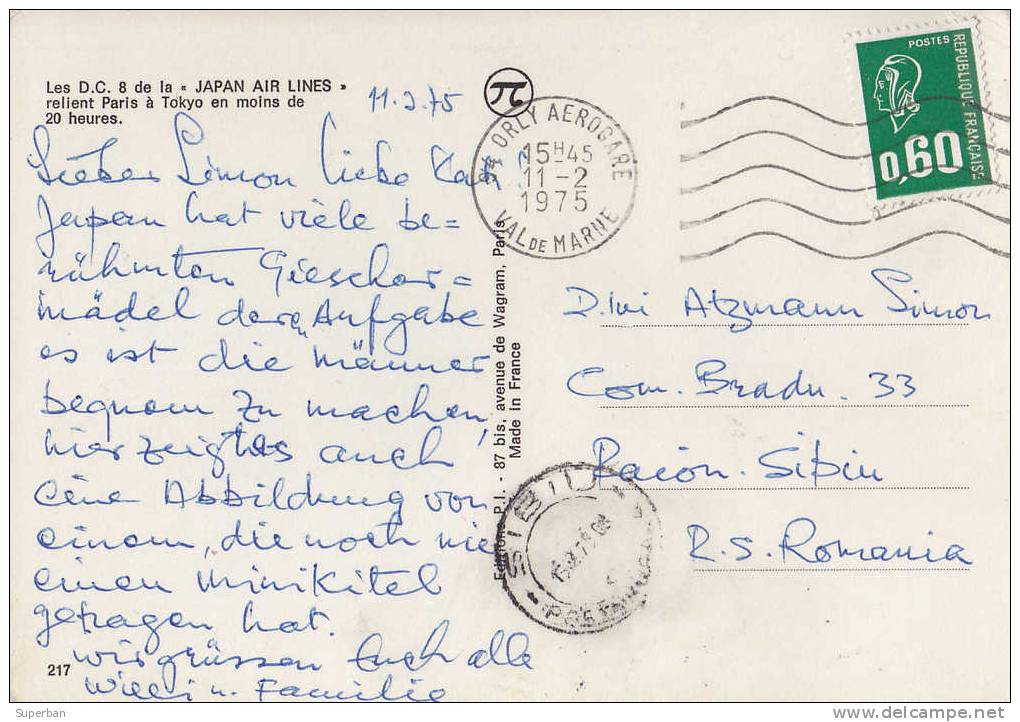 Les D.C. 8 de la « JAPAN AIR LINES »
relient Paris à Tokyo en moins de
20 heures.
11.2.75
Lieber Simon liebe
Japan hat viele be=
rühmten Giescher=
mädel deren Aufgabe
es ist die männer
beqnem zu machen,
hier zeigt es auch
eine Abbildung von
einem, die noch nie
einen Minikitel
getragen hat.
wir grüssen Euch alle
Willi u. Familie
217
Editions P.I. - 87 bis, avenue de Wagram, Paris
Made in France
94 ORLY AEROGARE
15H45
11-2
1975
VAL DE MARNE
POSTES
REPUBLIQUE FRANÇAISE
0,60
D.lui Atzmann Simon
Com. Bradu. 33
Raion. Sibiu
R.S. Romania
SIBIU
© Superban
delcampe.net